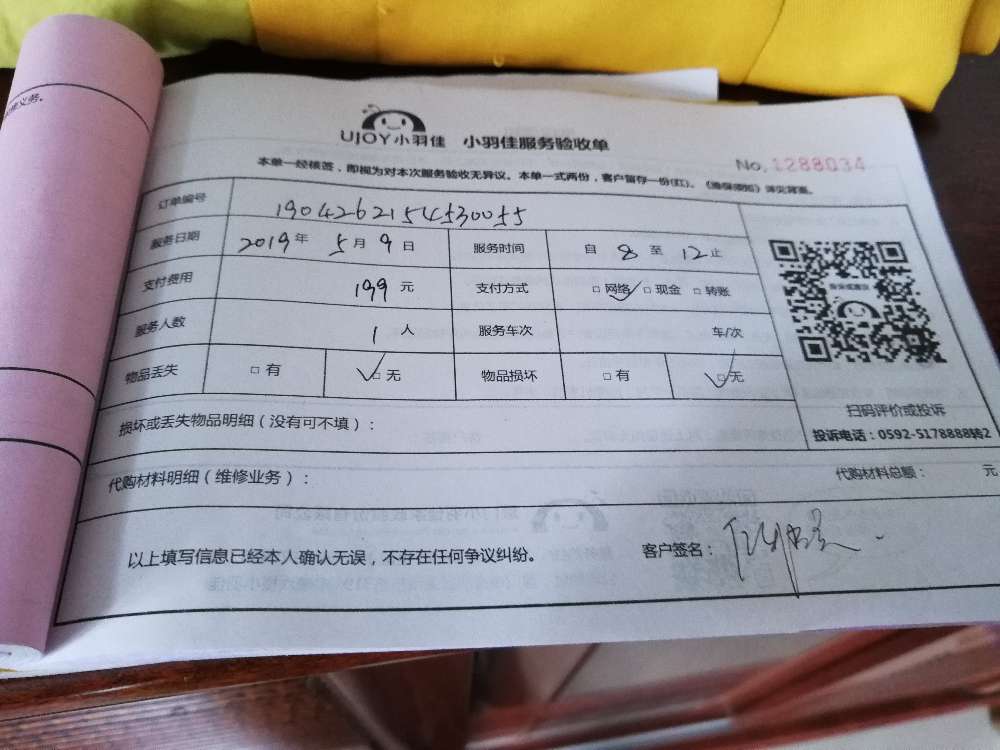 修义务。
UJOY小羽佳 小羽佳服务验收单
No. 1288034
本单一经核签，即视为对本次服务验收无异议。本单一式两份，客户留存一份(红)。《维保须知》详见背面。
订单编号
服务日期 2019年 5月 9日 服务时间 自 8 至 12 止
支付费用 199 元 支付方式 □网络 □现金 □转账
服务人数 1 人 服务车次 车/次
物品丢失 □有 □无 物品损坏 □有 □无
扫码评价或投诉
投诉电话：0592-5178888转2
损坏或丢失物品明细（没有可不填）：
代购材料明细（维修业务）： 代购材料总额： 元
以上填写信息已经本人确认无误，不存在任何争议纠纷。 客户签名：